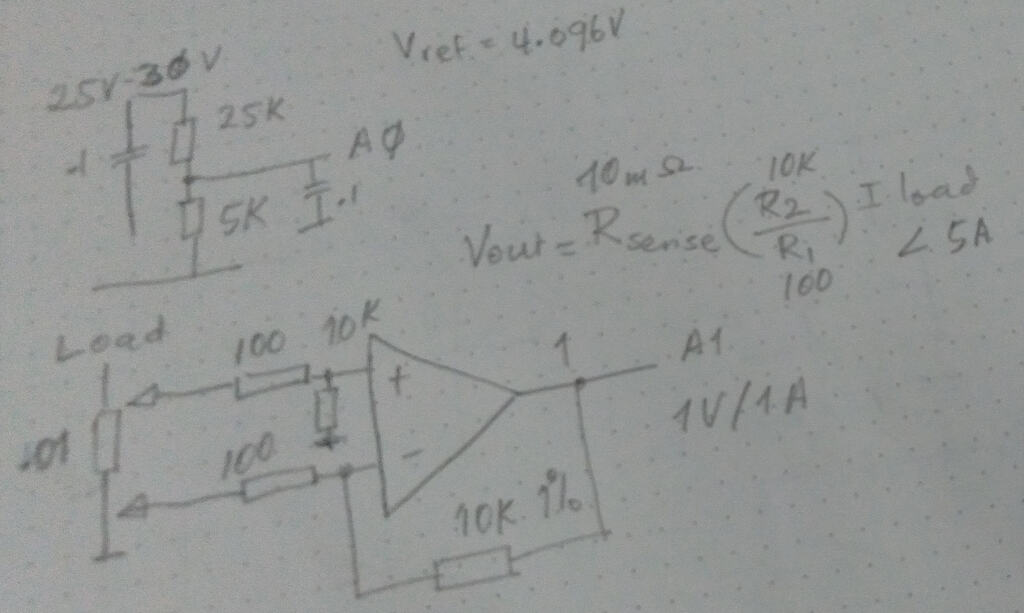 Vref = 4.096V
25V-30V
25K
.1
A0
5K
.1
10mΩ 10K
Vout = Rsense (R2/R1) I load
100 < 5A
Load
100 10K
+
1
A1
.01
1V/1A
100
-
10K 1%